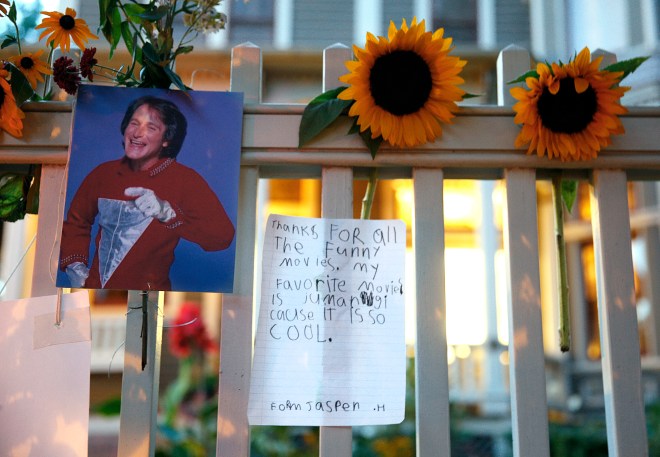 THANKS FOR all
THE Funny
movies. my
Favorite movies
IS Jumangi
cause IT IS SO
COOL.
FORM JASPER .H